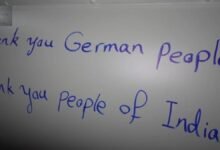 nk you German people
nk you people of India